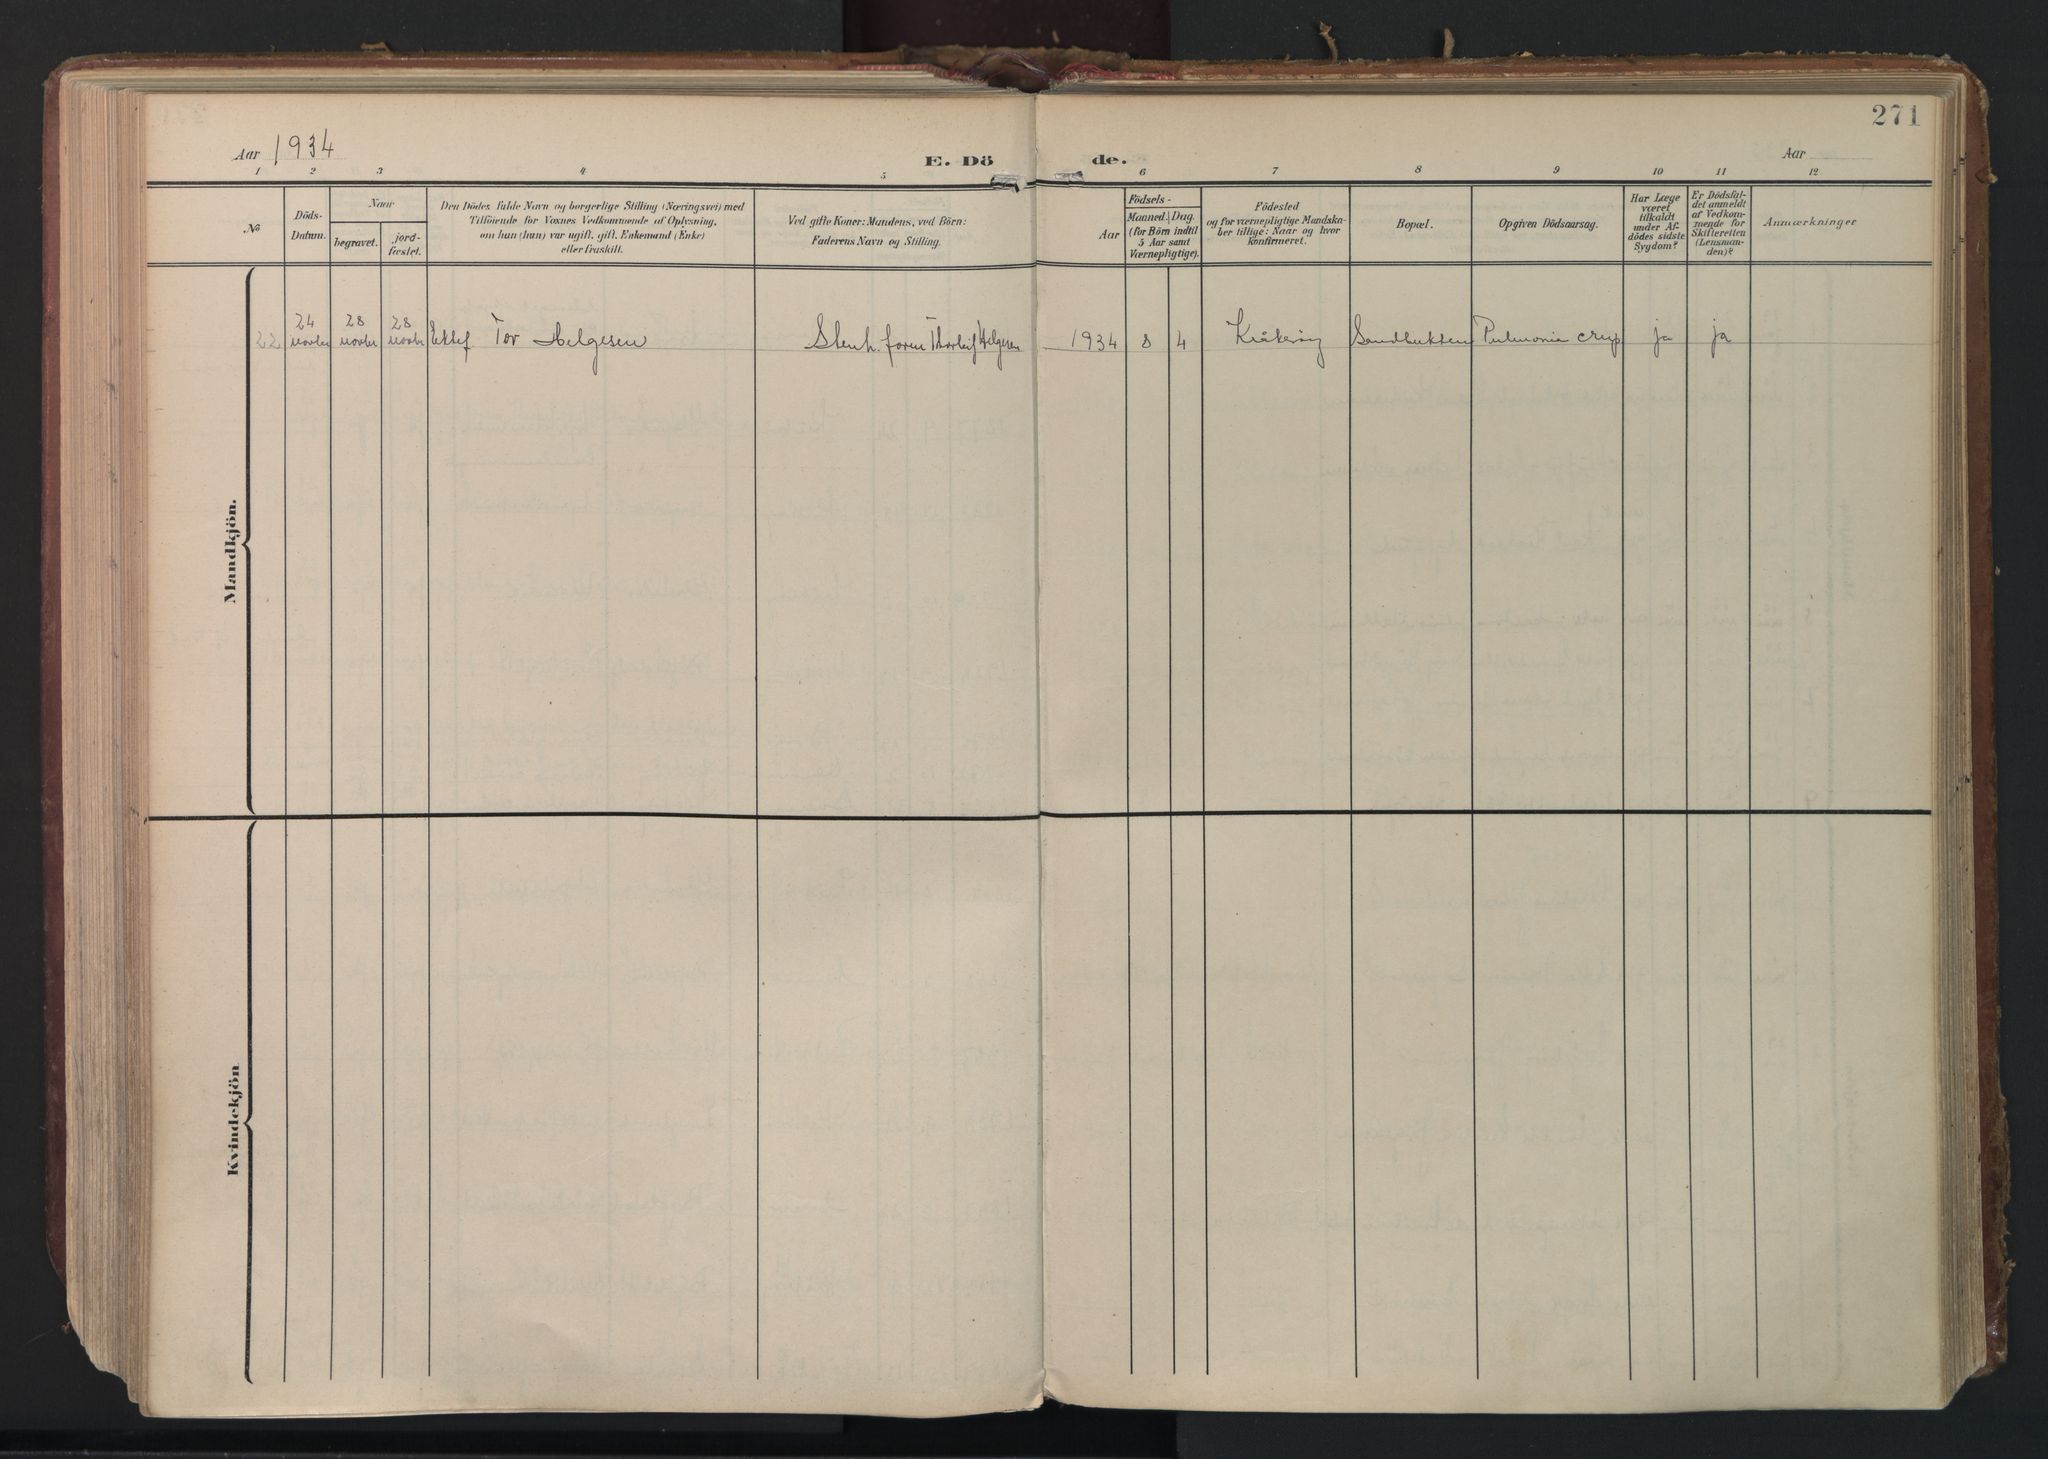 271
Aar 1934
E. Dö de.
Aar
1 2 3 4 5 6 7 8 9 10 11 12
No
Döds-
Datum.
Naar
begravet.
jord-
fæstet.
Den Dödes fulde Navn og borgerlige Stilling (Næringsvei) med
Tilföiende for Voxnes Vedkommende af Oplysning,
om han (hun) var ugift, gift, Enkemand (Enke)
eller fraskilt.
Ved gifte Koner: Mandens, ved Börn:
Faderens Navn og Stilling.
Födsels-
Aar
Maaned. Dag.
(for Börn indtil
5 Aar samt
Værnepligtige).
Födested
og for værnepligtige Mandska-
ber tillige: Naar og hvor
konfirmeret.
Bopæl.
Opgiven Dödsaarsag.
Har Læge
været
tilkaldt
under Af-
dödes sidste
Sygdom?
Er Dödsfal-
det anmeldt
af Vedkom-
mende for
Skifteretten
(Lensman-
den)?
Anmærkninger
Mandkjön.
24 28 28
22 novbr novbr novbr Ektef Tor Helgesen Stenh. Thorleif Helgesen 1934 8 4 Kråkerøy Sandbukten Pulmonia crup ja ja
Kvindekjön